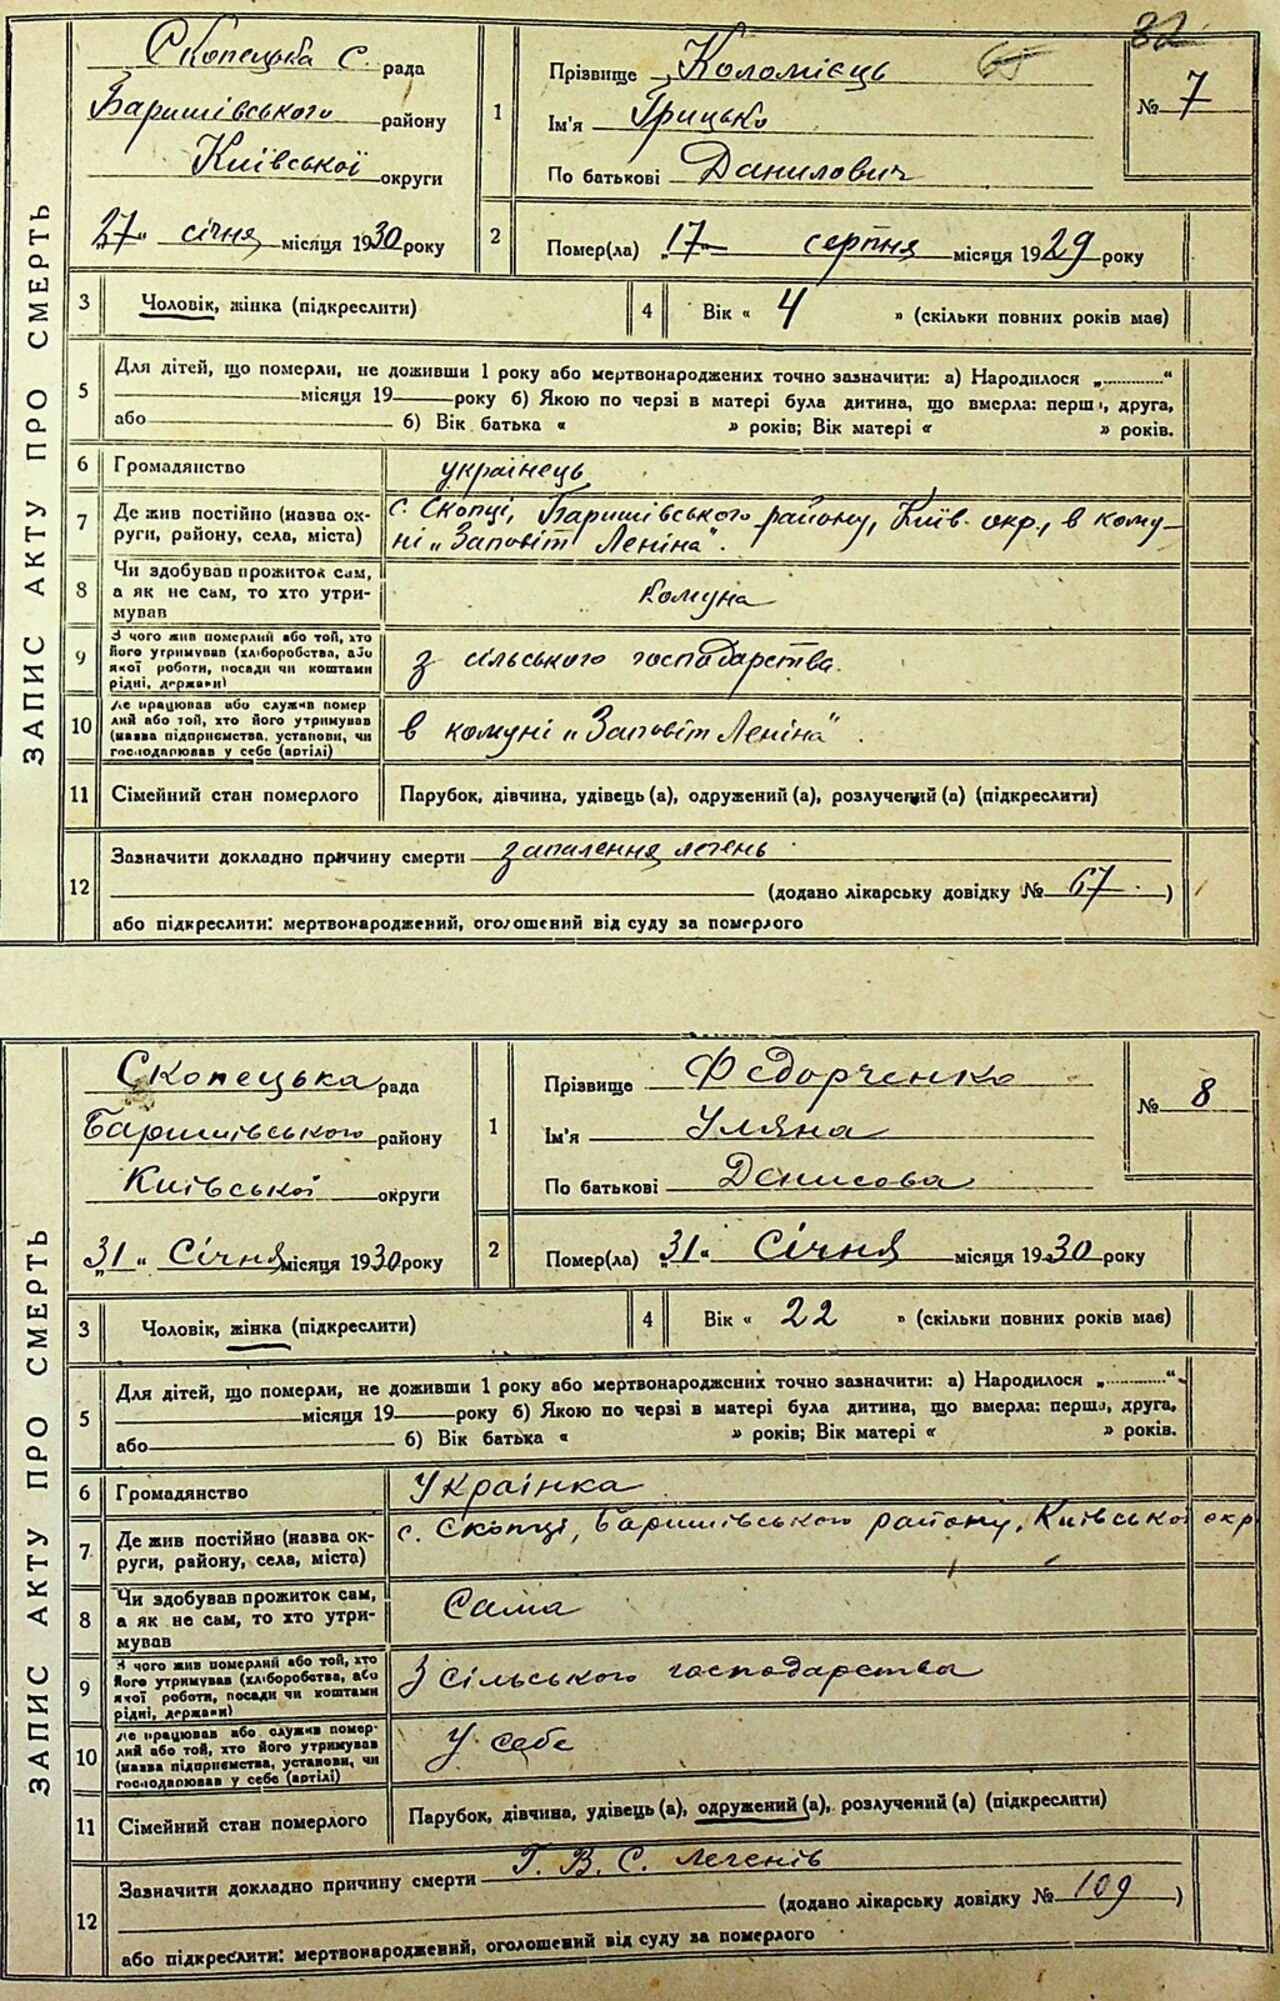 ЗАПИС АКТУ ПРО СМЕРТЬ
Скопецька с. рада
Баришівського району
Київської округи
27" січня місяця 1930 року
1
Прізвище Коломієць
Ім'я Грицько
По батькові Данилович
32
№ 7
2
Помер(ла) „17" серпня місяця 1929 року
3
Чоловік, жінка (підкреслити)
4
Вік « 4 » (скільки повних років має)
5
Для дітей, що померли, не доживши 1 року або мертвонароджених точно зазначити: а) Народилося „............"
місяця 19 року б) Якою по черзі в матері була дитина, що вмерла: перша, друга,
або б) Вік батька « » років; Вік матері « » років.
6
Громадянство
українець
7
Де жив постійно (назва ок-
руги, району, села, міста)
с. Скопці, Баришівського району, Київ. окр., в кому-
ні „Заповіт Леніна".
8
Чи здобував прожиток сам,
а як не сам, то хто утри-
мував
комуна
9
З чого жив померлий або той, хто
його утримував (хліборобства, або
якої роботи, посади чи коштами
рідні, держави)
з сільського господарства.
10
Де працював або служив помер
лий або той, хто його утримував
(назва підприємства, установи, чи
господарював у себе (артілі)
в комуні „Заповіт Леніна".
11
Сімейний стан померлого
Парубок, дівчина, удівець (а), одружений (а), розлучений (а) (підкреслити)
12
Зазначити докладно причину смерти запалення легень
(додано лікарську довідку № 67.)
або підкреслити: мертвонароджений, оголошений від суду за померлого
ЗАПИС АКТУ ПРО СМЕРТЬ
Скопецька рада
Баришівського району
Київської округи
„31" Січня місяця 1930 року
1
Прізвище Федорченко
Ім'я Уляна
По батькові Денисова
№ 8
2
Помер(ла) „31" Січня місяця 1930 року
3
Чоловік, жінка (підкреслити)
4
Вік « 22 » (скільки повних років має)
5
Для дітей, що померли, не доживши 1 року або мертвонароджених точно зазначити: а) Народилося „............"
місяця 19 року б) Якою по черзі в матері була дитина, що вмерла: перша, друга,
або б) Вік батька « » років; Вік матері « » років.
6
Громадянство
Українка
7
Де жив постійно (назва ок-
руги, району, села, міста)
с. Скопці, Баришівського району, Київської окр
8
Чи здобував прожиток сам,
а як не сам, то хто утри-
мував
Сама
9
З чого жив померлий або той, хто
його утримував (хліборобства, або
якої роботи, посади чи коштами
рідні, держави)
З сільського господарства
10
Де працював або служив помер-
лий або той, хто його утримував
(назва підприємства, установи, чи
господарював у себе (артілі)
У себе
11
Сімейний стан померлого
Парубок, дівчина, удівець (а), одружений (а), розлучений (а) (підкреслити)
12
Зазначити докладно причину смерти Т. В. С. легенів
(додано лікарську довідку № 109)
або підкреслити: мертвонароджений, оголошений від суду за померлого